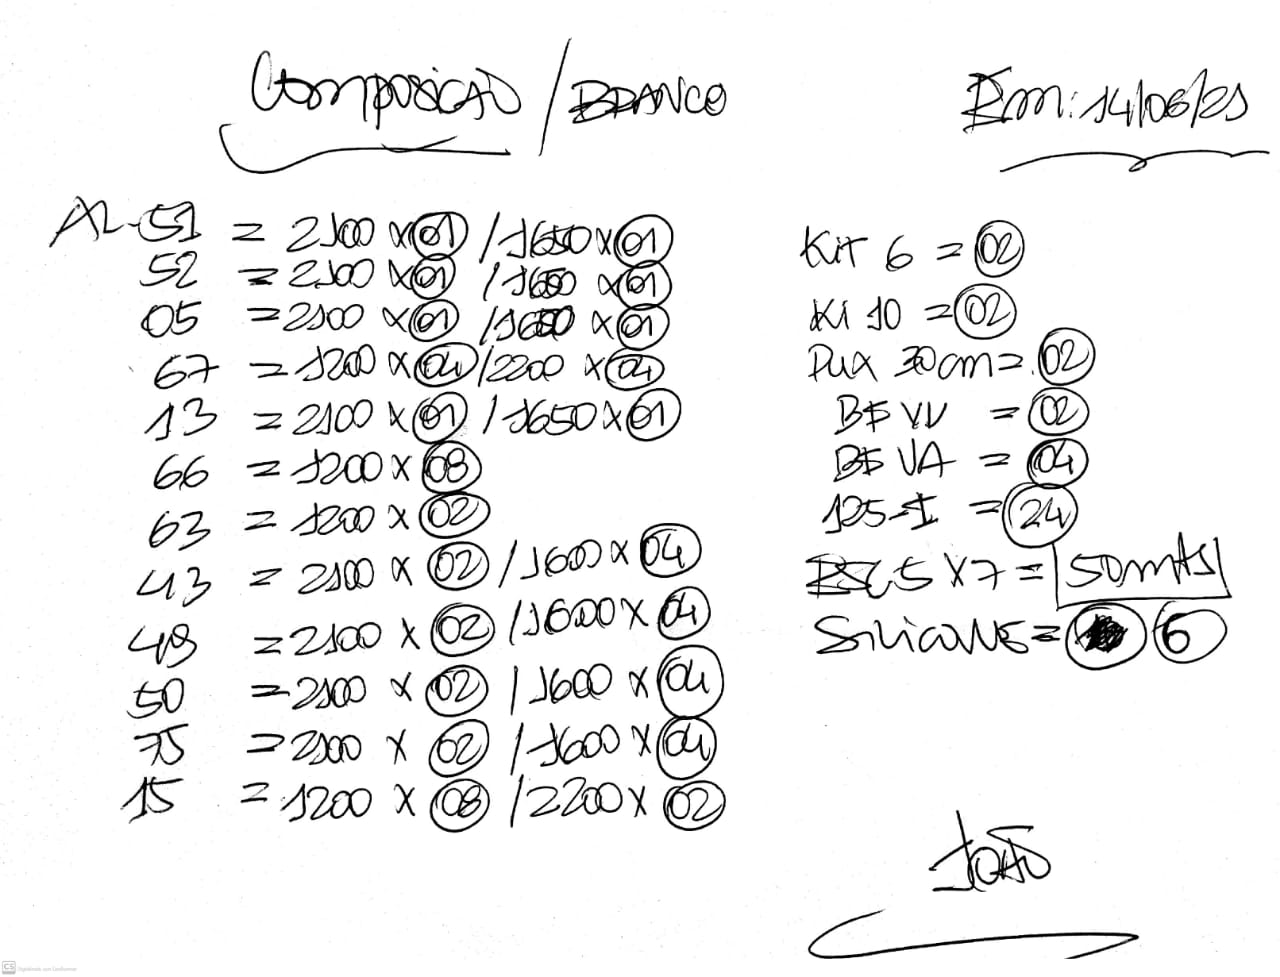 Composição / BRANCO
Em: 14/06/21
AL-51 = 2100 x 01 / 1650 x 01
52 = 2100 x 01 / 1650 x 01
05 = 2100 x 01 / 1650 x 01
67 = 1200 x 04 / 2200 x 04
13 = 2100 x 01 / 1650 x 01
66 = 1200 x 08
63 = 1200 x 02
43 = 2100 x 02 / 1600 x 04
49 = 2100 x 02 / 1600 x 04
50 = 2100 x 02 / 1600 x 04
75 = 2100 x 02 / 1600 x 04
15 = 1200 x 08 / 2200 x 02
Kit 6 = 02
Ki 10 = 02
Pux 30cm = 02
VV = 02
VA = 04
125-I = 24
5 x 7 = 50mts
Silicone = 6
João
CS Digitalizado com CamScanner